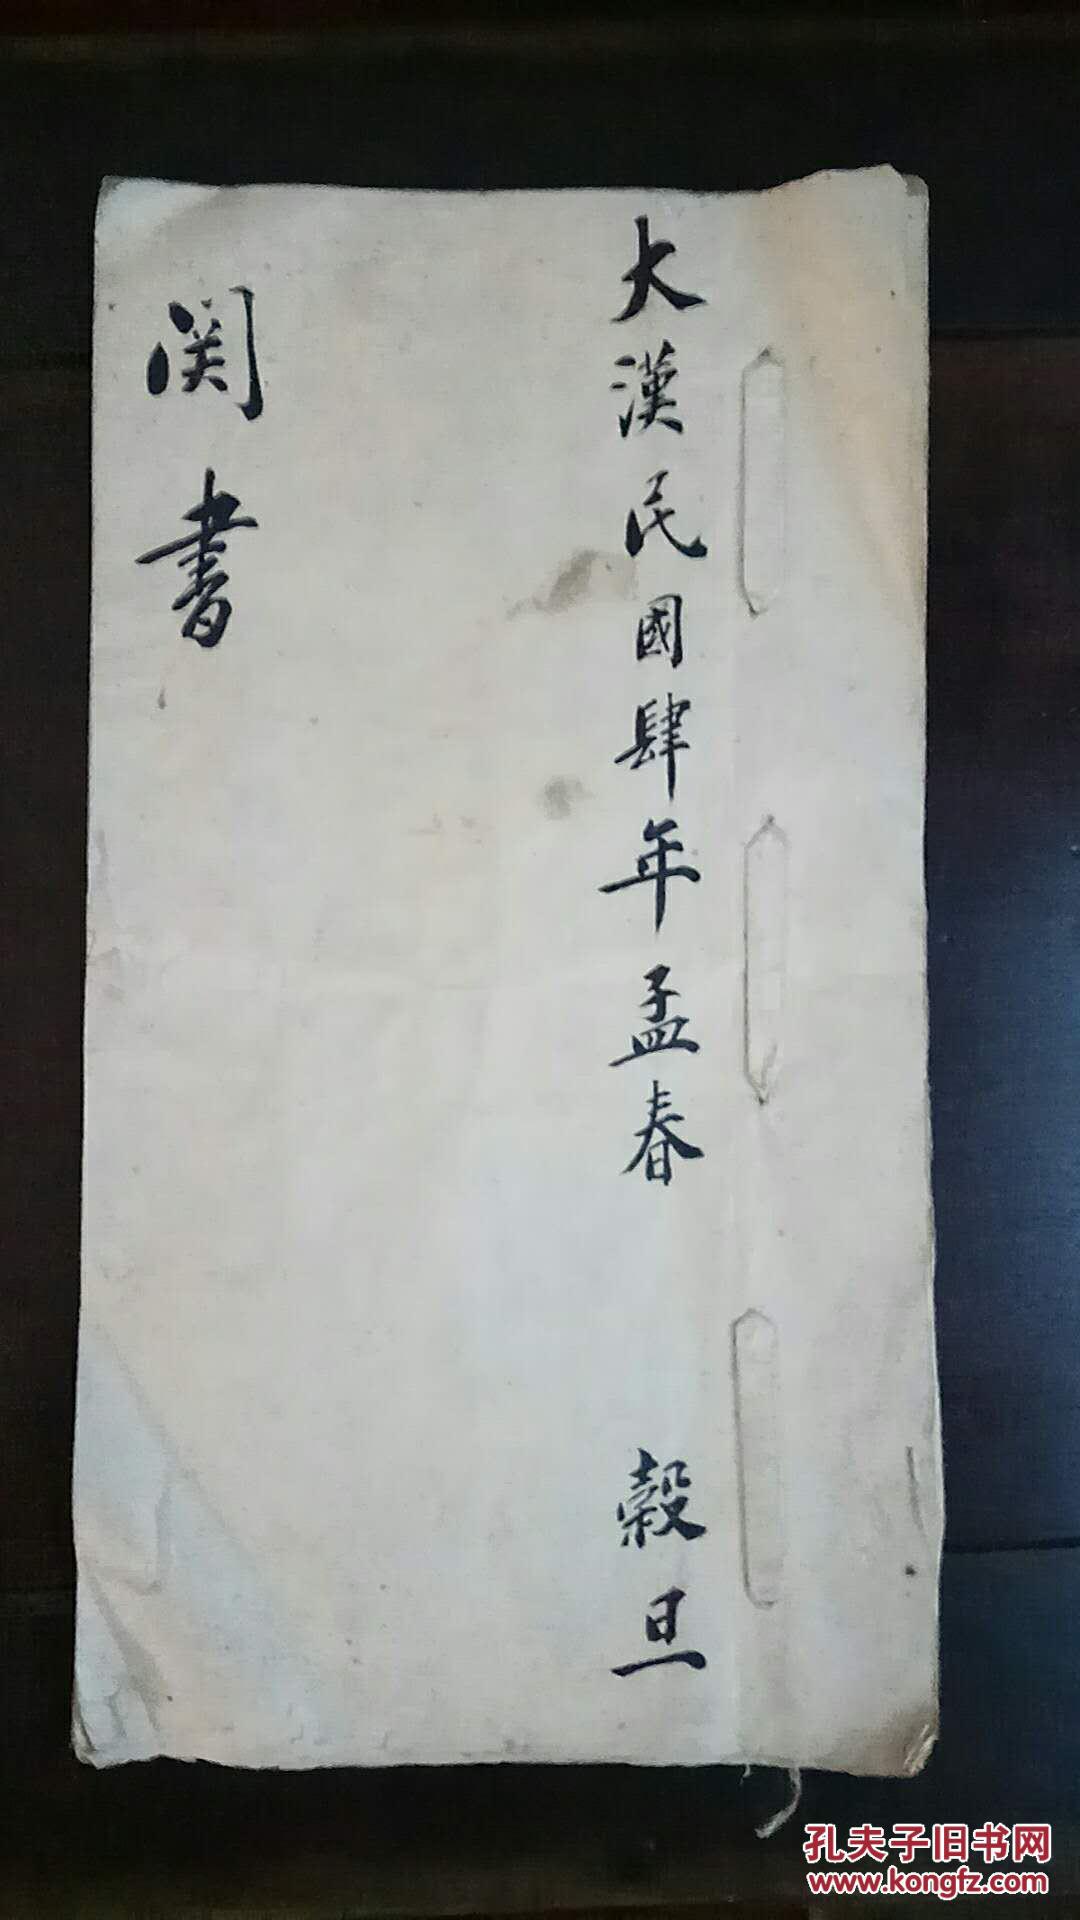 大漢民國肆年孟春 穀旦
関書
孔夫子旧书网
www.kongfz.com